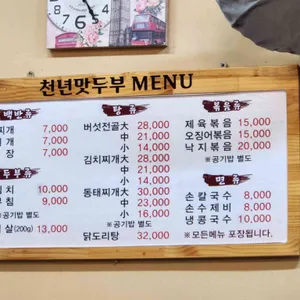 천년맛두부 MENU
백반류
찌개 7,000
찌개 7,000
장 7,000
두부류
김치 10,000
부침 9,000
※공기밥 별도
살(200g) 13,000
탕류
버섯전골大 28,000
中 21,000
小 14,000
김치찌개大 28,000
中 21,000
小 14,000
동태찌개大 30,000
中 23,000
小 16,000
※공기밥 별도
닭도리탕 32,000
볶음류
제육볶음 15,000
오징어볶음 15,000
낙지볶음 20,000
※공기밥 별도
면류
손칼국수 8,000
손수제비 8,000
냉콩국수 9,000
※모든메뉴 포장됩니다.